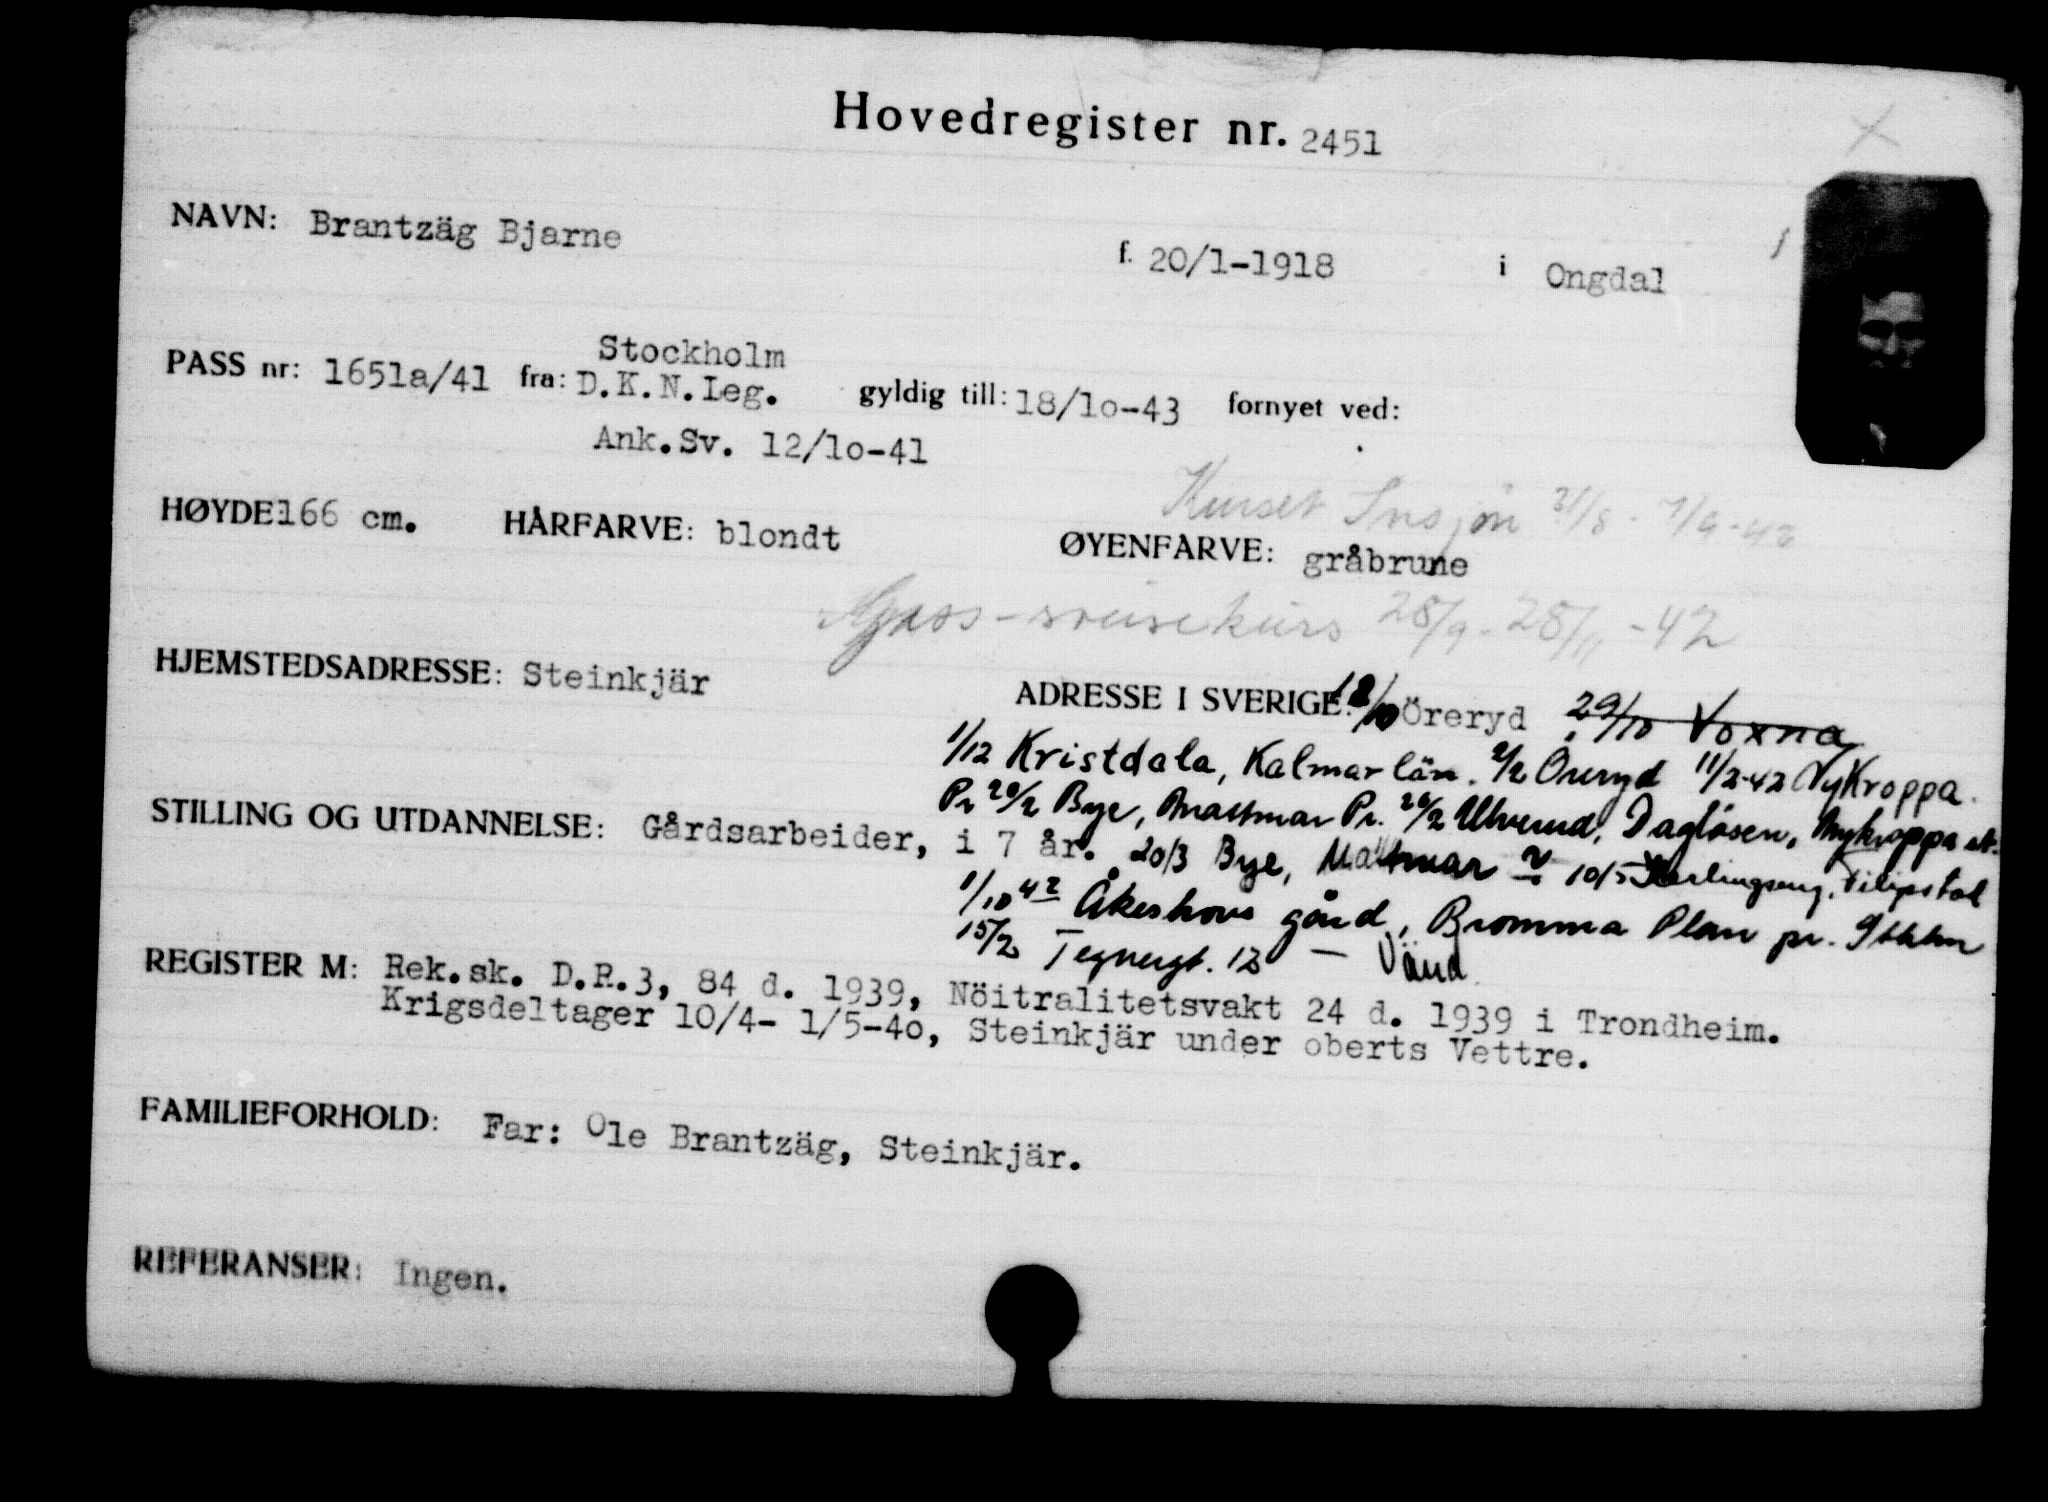 Hovedregister nr. 2451
NAVN: Brantzäg Bjarne f. 20/1-1918 i Ongdal
Stockholm
PASS nr: 1651a/41 fra: D.K.N.Leg. gyldig till: 18/1o-43 fornyet ved:
Ank.Sv. 12/1o-41
Kurset Insjön 31/8 - 7/9-42
HØYDE: 166 cm. HÅRFARVE: blondt ØYENFARVE: gråbrune
Gass-sveisekurs 28/9 - 28/11 -42
HJEMSTEDSADRESSE: Steinkjär ADRESSE I SVERIGE: 18/10 Öreryd 29/10 Voxna
1/12 Kristdala, Kalmar län. 2/2 Öreryd 11/2-42 Nykroppa.
Pr 20/2 Bye, Mattmar Pr. 26/2 Ulverud, Daglösen, Nykroppa st.
STILLING OG UTDANNELSE: Gårdsarbeider, i 7 år. 20/3 Bye, Mattmar 10/5 Filipstad
1/10 42 Åkeshovs gård, Bromma Plan pr. Sthlm
15/2 Tegnergt. 13 — Vänd.
REGISTER M: Rek.sk. D.R.3, 84 d. 1939, Nöitralitetsvakt 24 d. 1939 i Trondheim.
Krigsdeltager 10/4- 1/5-4o, Steinkjär under oberts Vettre.
FAMILIEFORHOLD: Far: Ole Brantzäg, Steinkjär.
REFERANSER: Ingen.